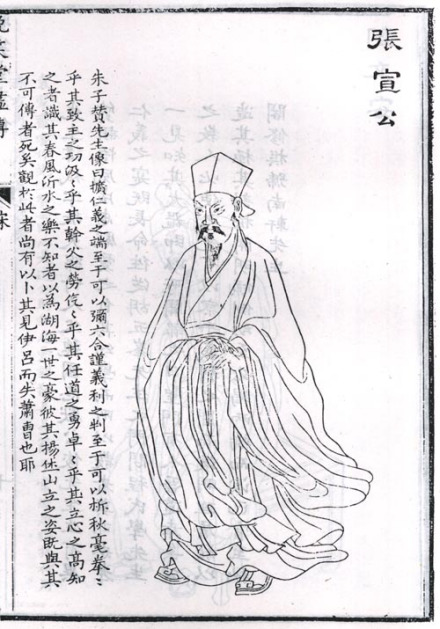 張宣公
朱子贊先生像曰擴仁義之端至于可以彌六合謹義利之判至于可以析秋毫拳〻
乎其致主之切汲〻乎其幹父之勞仡〻乎其任道之勇卓〻乎其立心之高知
之者識其春風沂水之樂不知者以為湖海一世之豪彼其揚休山立之姿既與其
不可傳者死矣觀於此者尚有以卜其見伊呂而失蕭曹也耶
晚笑堂畫傳